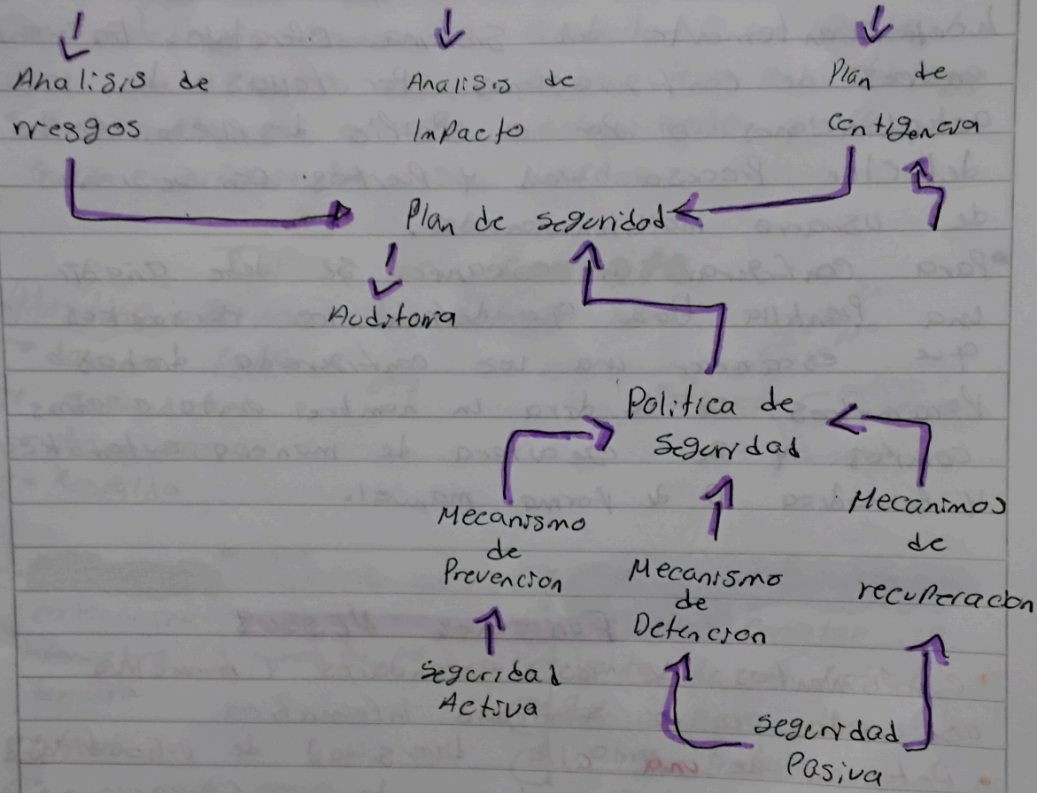 Analisis de
rresgos
Analisis de
Impacto
Plan de
contigencia
Plan de seguridad
Auditoria
Politica de
seguridad
Mecanismo
de
Prevencion
Mecanismo
de
Detencion
Mecanimos
de
recuperacion
Seguridad
Activa
seguridad
Pasiva